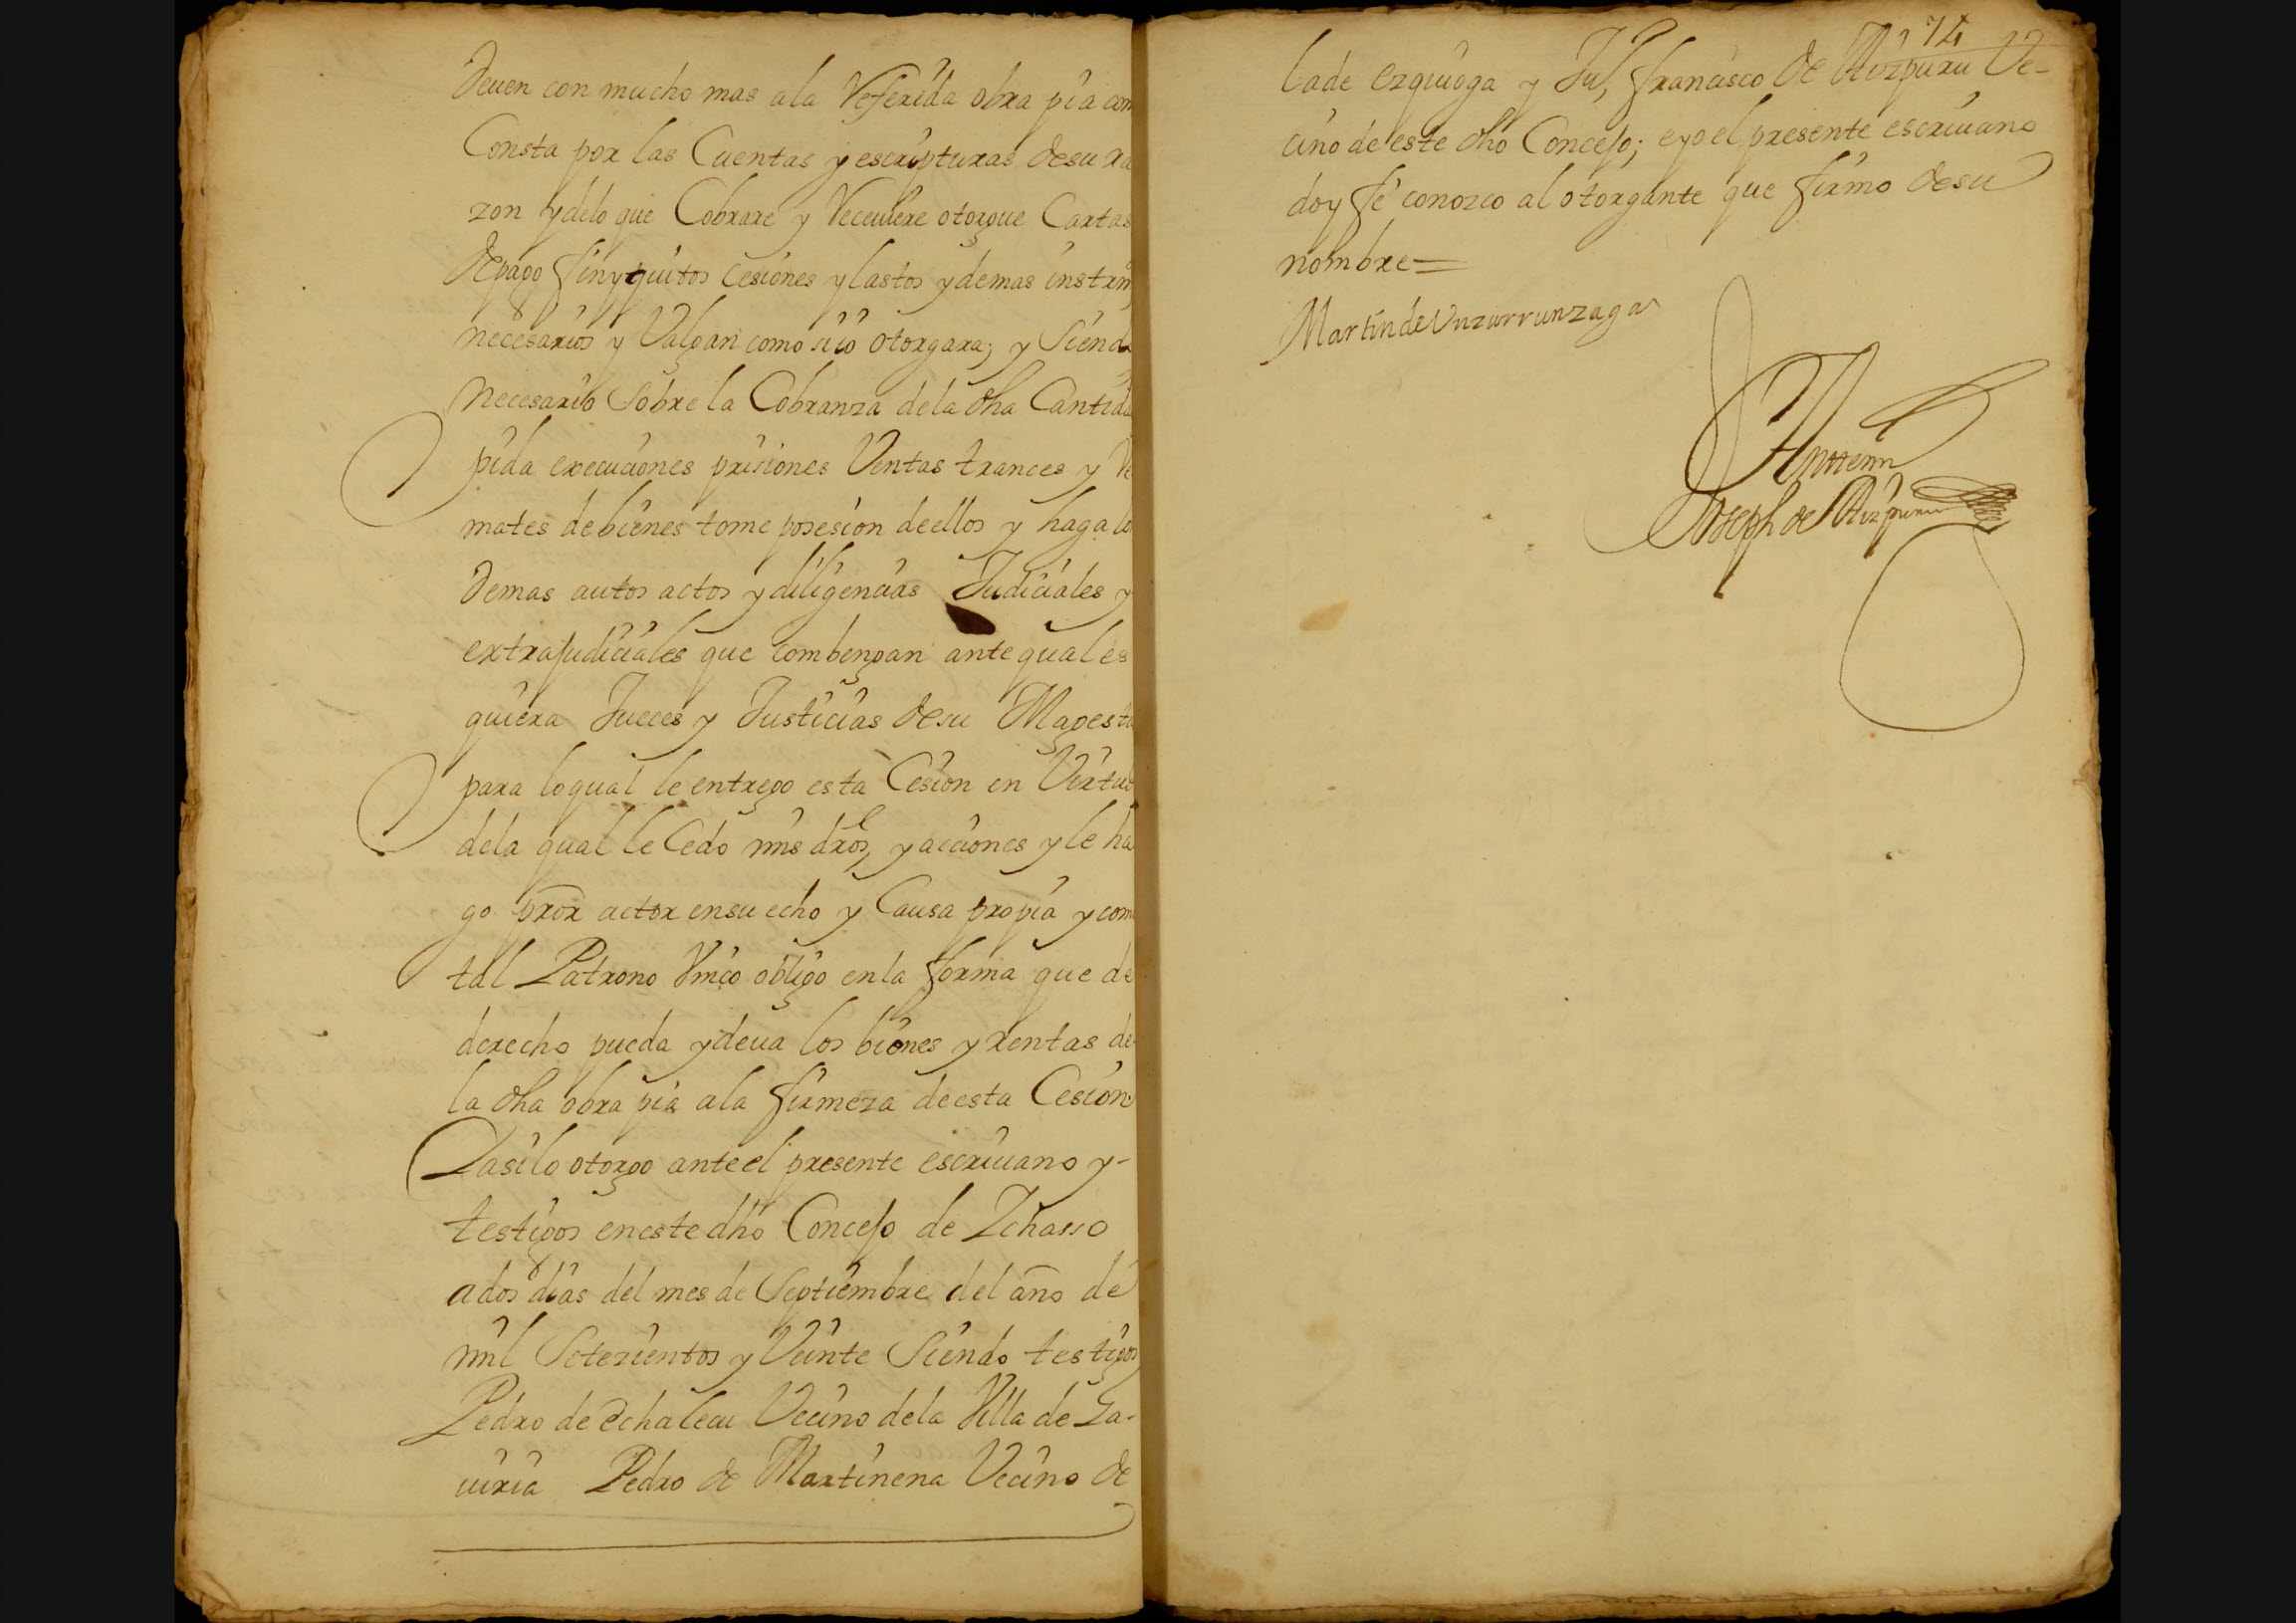 deuen con mucho mas ala referida obra pia com
Consta por las Cuentas y escripturas desu ra
zon ydelo que Cobrare y receuiere otorgue Cartas
depago finyquitos cesiones ylastos ydemas instrm
necesarios y Valgan como si io otorgara; y Siend
necesario Sobre la Cobranza dela dha Cantida
pida execuciones prisiones Ventas trances y re
mates debienes tome posesion deellos y haga lo
demas autos actos ydiligencias Judiciales y
extrajudiciales que combengan antequales
quiera Jueces y Justicias desu Magesta
para loqual le entrego esta Cesion en Virtud
dela qual le Cedo mis dros, yacciones yle ha
go pror actor ensu echo y Causa propia ycom
tal Patrono Vnico obligo enla forma que de
derecho pueda ydeua los bienes yrentas de
la dha obra pia ala firmeza deesta Cesion
Yasilo otorgo anteel presente escriuano y-
testigos eneste dho Concejo de Ychasso
ados dias del mes de Septiembre del año de
mil Setezientos y Veinte Siendo testigos
Pedro de echalecu Vecino dela Villa de Ga-
uiria Pedro de Martinena Vecino de
74
lade ezquioga y Ju, francisco de Aizpuru Ve-
cino deeste dho Concejo; eyo el presente escriuano
doy fe conozco al otorgante que firmo desu
nombre=
Martin de Vnzurrunzaga
Antemi
Joseph de Aizpuru